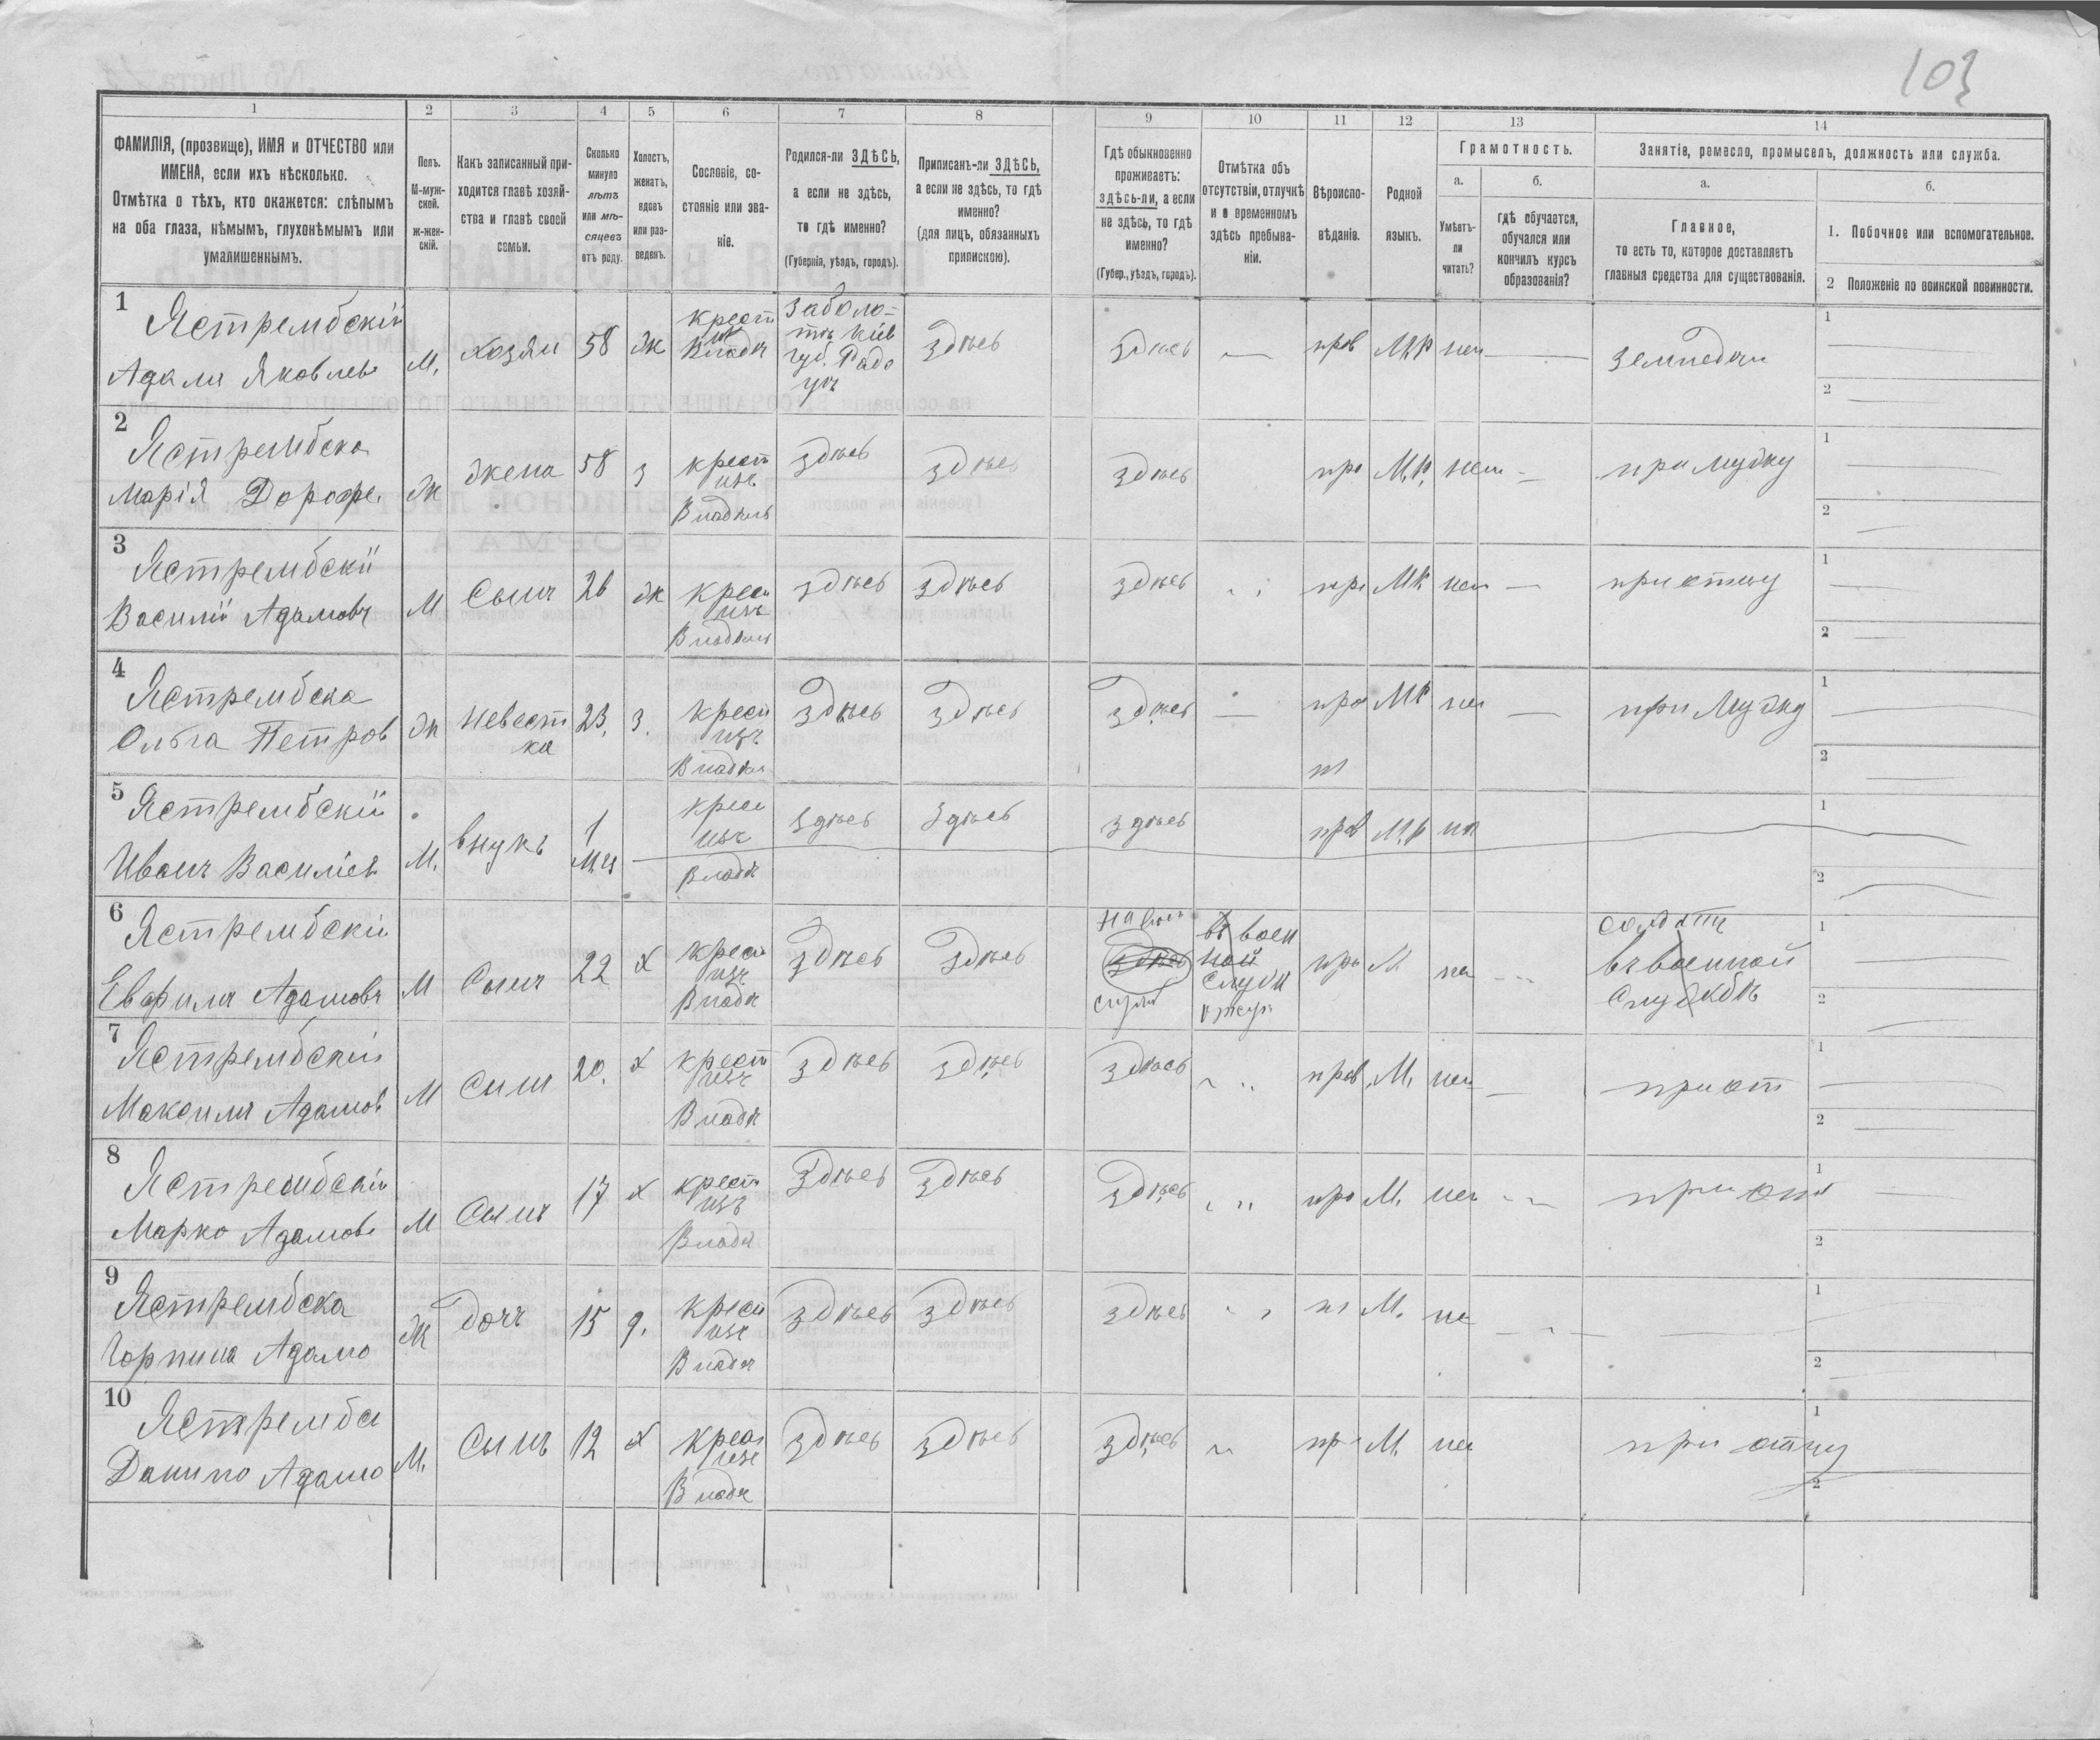 103
1 2 3 4 5 6 7 8 9 10 11 12 13 14
ФАМИЛІЯ, (прозвище), ИМЯ и ОТЧЕСТВО или
ИМЕНА, если ихъ нѣсколько.
Отмѣтка о тѣхъ, кто окажется: слѣпымъ
на оба глаза, нѣмымъ, глухонѣмымъ или
умалишеннымъ.
Полъ.
М-муж-
ской.
ж-жен-
скій.
Какъ записанный при-
ходится главѣ хозяй-
ства и главѣ своей
семьи.
Сколько
минуло
лѣтъ
или мѣ-
сяцевъ
отъ роду.
Холостъ,
женатъ,
вдовъ
или раз-
веденъ.
Сословіе, со-
стояніе или зва-
ніе.
Родился-ли ЗДѢСЬ,
а если не здѣсь,
то гдѣ именно?
(Губернія, уѣздъ, городъ).
Приписанъ-ли ЗДѢСЬ,
а если не здѣсь, то гдѣ
именно?
(для лицъ, обязанныхъ
припискою).
Гдѣ обыкновенно
проживаетъ:
здѣсь-ли, а если
не здѣсь, то гдѣ
именно?
(Губер., уѣздъ, городъ).
Отмѣтка объ
отсутствіи, отлучкѣ
и о временномъ
здѣсь пребыва-
ніи.
Вѣроиспо-
вѣданіе.
Родной
языкъ.
Грамотность.
а.
Умѣетъ-
ли
читать?
б.
гдѣ обучается,
обучался или
кончилъ курсъ
образованія?
Занятіе, ремесло, промыселъ, должность или служба.
а.
Главное,
то есть то, которое доставляетъ
главныя средства для существованія.
б.
1. Побочное или вспомогательное.
2 Положеніе по воинской повинности.
1
Ястрембскій
Адамъ Яковлев
М, хозяи 58 ж
крест
из
Владк
заболо-
тъ Кіев
губ. Радо
здѣсь здѣсь — прав М.Р нет — земледел
1
2
2
Ястрембска
Марія Дорофе.
ж жена 58 з
крест
изъ
Владкъ
здѣсь здѣсь здѣсь пра М.Р. нет — при мужу
1
2
3
Ястрембскій
Василій Адамовъ
М Сынъ 26 ж
крес
изъ
Владк
здѣсь здѣсь здѣсь пра МР нет — при отцу
1
2
4
Ястрембска
Ольга Петров
ж Невест
ка
23. з.
крест
изъ
Владк
здѣсь здѣсь здѣсь — пра МР не — при Мужу
1
2
5
Ястрембскій
Иванъ Василіев
М. внукъ 1
М.ц
крес
изъ
Владк
здѣсь здѣсь здѣсь прав М.Р не
1
2
6
Ястрембскій
Евфимъ Адамовъ
М Сынъ 22 х
крес
изъ
Владк
здѣсь здѣсь
здѣсь
въ воен
ной
служ
пра М не
солдатъ
въ военной
службѣ
1
2
7
Ястрембскій
Максимъ Адамов
М Сынъ 20. х
крест
изъ
Владк
здѣсь здѣсь здѣсь прав М. нет — при от
1
2
8
Ястрембскій
Марко Адамов
М Сынъ 17 х
крест
изъ
Владк
здѣсь здѣсь здѣсь пра М. нет при от
1
2
9
Ястрембска
Горпина Адамо
Ж дочъ 15 д.
крест
изъ
Владк
здѣсь здѣсь здѣсь М. не
1
2
10
Ястрембс
Данило Адамо
М. Сынъ 12 х
крес
изъ
Владк
здѣсь здѣсь здѣсь пр М. нет при отцу
1
2